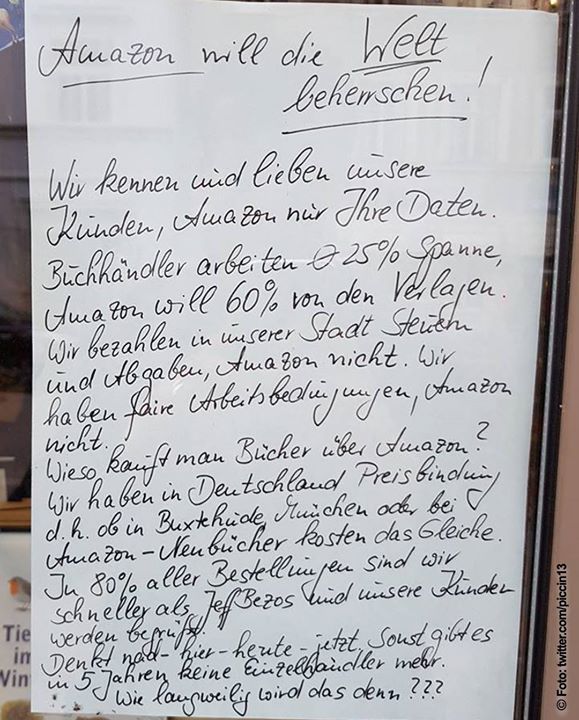 Amazon will die Welt
beherrschen!
Wir kennen und lieben unsere
Kunden, Amazon nur Ihre Daten.
Buchhändler arbeiten Ø 25% Spanne,
Amazon will 60% von den Verlagen.
Wir bezahlen in unserer Stadt Steuern
und Abgaben, Amazon nicht. Wir
haben faire Arbeitsbedingungen, Amazon
nicht.
Wieso kauft man Bücher über Amazon?
Wir haben in Deutschland Preisbindung
d.h. ob in Buxtehude, München oder bei
Amazon - Neubücher kosten das Gleiche.
In 80% aller Bestellungen sind wir
schneller als Jeff Bezos und unsere Kunden
werden begrüßt.
Denkt nach - hier - heute - jetzt. Sonst gibt es
in 5 Jahren keine Einzelhändler mehr.
Wie langweilig wird das denn ???
Tie
im
Win
© Foto: twitter.com/piccin13